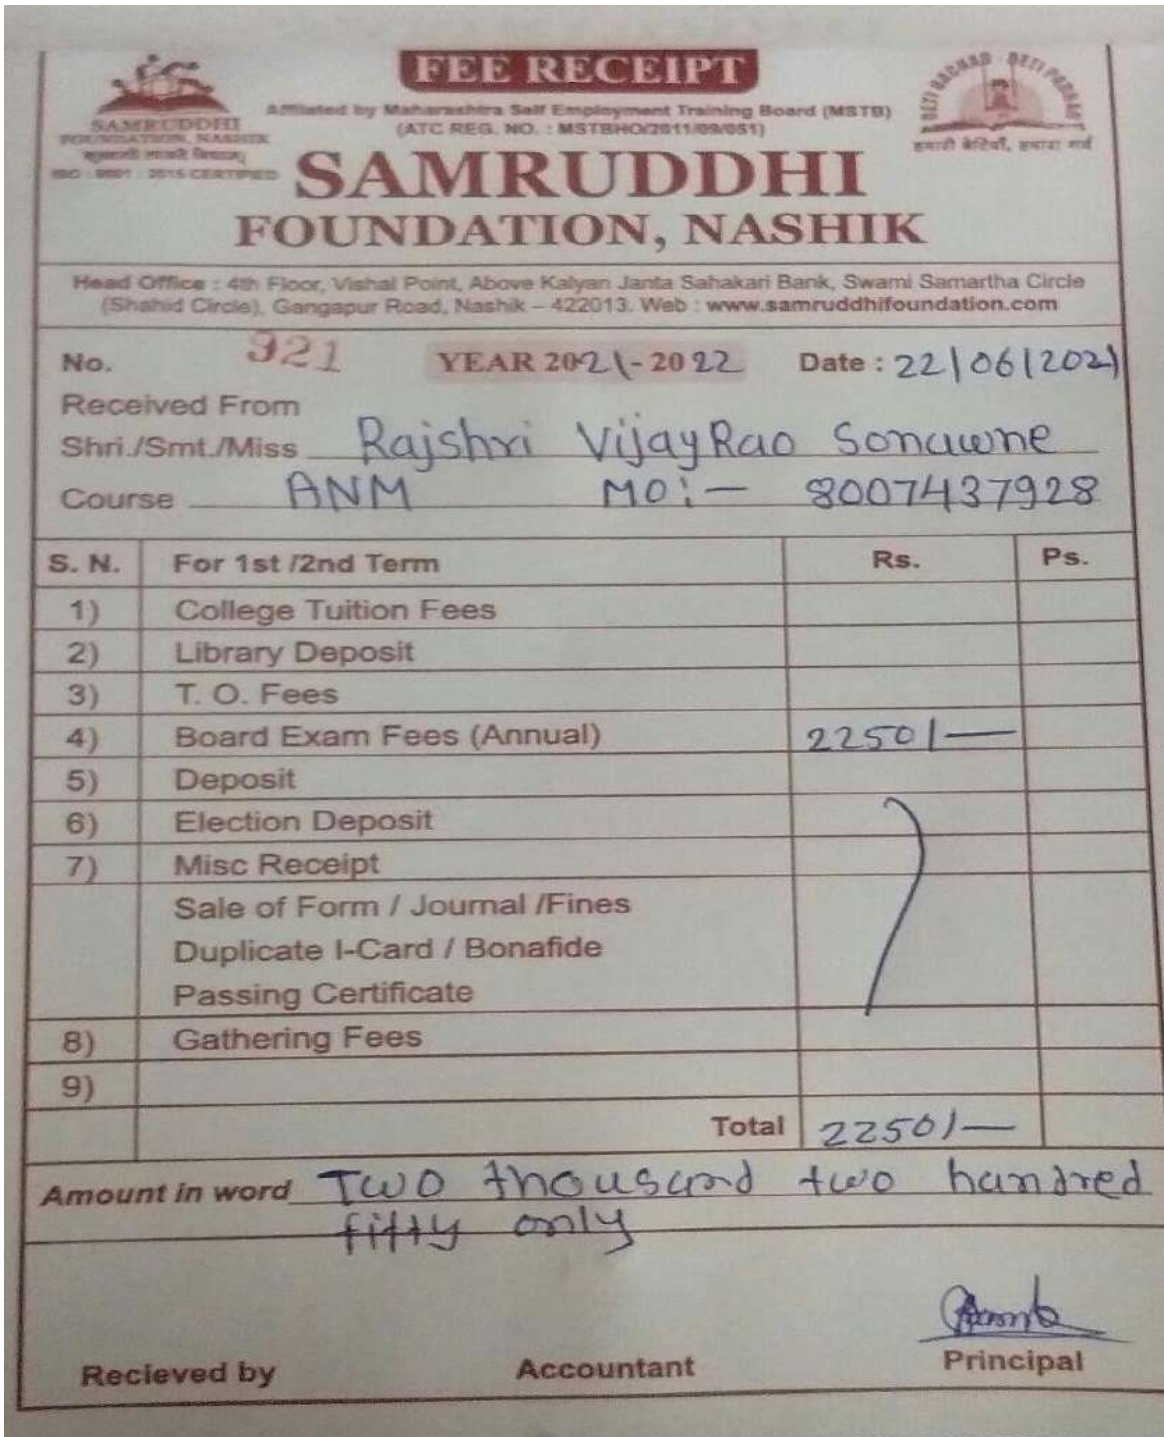 FEE RECEIPT
Affiliated by Maharashtra Self Employment Training Board (MSTB)
(ATC REG. NO. : MSTBHO/2011/09/051)
SAMRUDDHI
FOUNDATION, NASHIK
ISO : 9001 : 2015 CERTIFIED
BETI BACHAO - BETI PADHAO
हमारी बेटियाँ, हमारा गर्व
SAMRUDDHI
FOUNDATION, NASHIK
Head Office : 4th Floor, Vishal Point, Above Kalyan Janta Sahakari Bank, Swami Samartha Circle
(Shahid Circle), Gangapur Road, Nashik – 422013. Web : www.samruddhifoundation.com
No. 321 YEAR 2021-2022 Date : 22/06/2021
Received From
Shri./Smt./Miss Rajshri VijayRao Sonawne
Course ANM MO:- 8007437928
S. N. For 1st /2nd Term Rs. Ps.
1) College Tuition Fees
2) Library Deposit
3) T. O. Fees
4) Board Exam Fees (Annual) 2250/-
5) Deposit
6) Election Deposit
7) Misc Receipt
Sale of Form / Journal /Fines
Duplicate I-Card / Bonafide
Passing Certificate
8) Gathering Fees
9)
Total 2250/-
Amount in word Two thousand two hundred
fifty only
Recieved by Accountant Principal